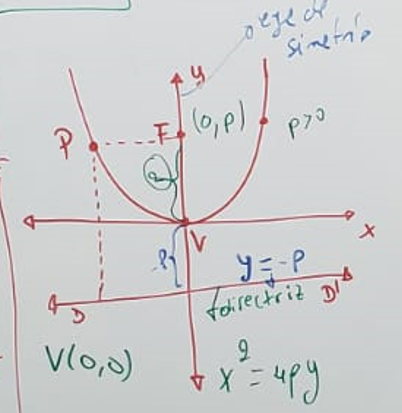 eje de
simetría
y
F (0,p) p>0
P
V
x
-p
y=-p
D directriz D'
V(0,0)
x²=4py